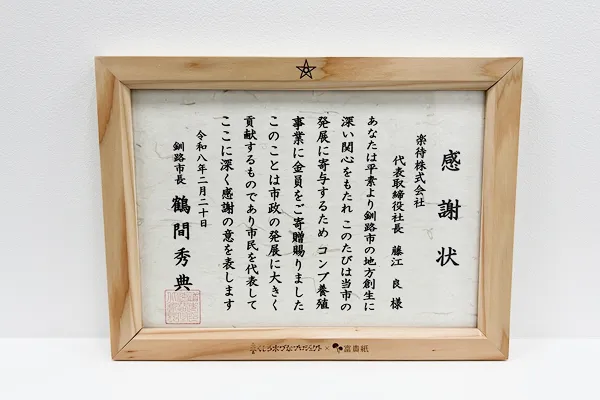 感謝状
楽待株式会社
代表取締役社長 藤江 良 様
あなたは平素より釧路市の地方創生に
深い関心をもたれ このたびは当市の
発展に寄与するため コンブ養殖
事業に金員をご寄贈賜りました
このことは市政の発展に大きく
貢献するものであり市民を代表して
ここに深く感謝の意を表します
令和八年二月二十日
釧路市長 鶴間秀典
くしろ木づなプロジェクト × 富貴紙